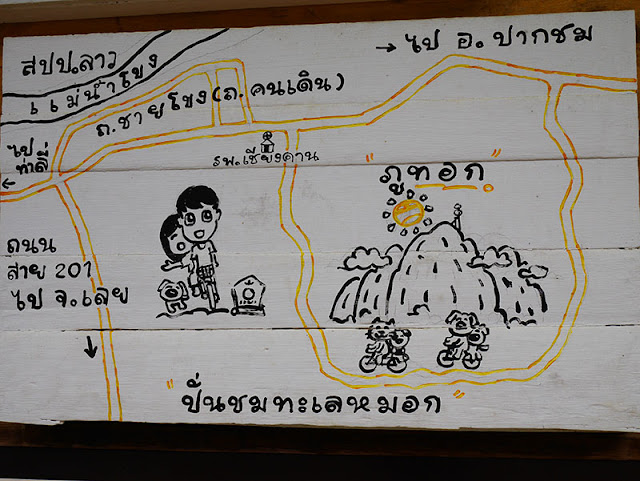 สปป.ลาว
แม่น้ำโขง
→ ไป อ. ปากชม
ถ.ชายโขง(ถ. คนเดิน)
ไป
ท่าลี่
รพ.เชียงคาน
"ภูทอก"
ถนน
สาย 201
ไป จ.เลย
"ปั่นชมทะเลหมอก"